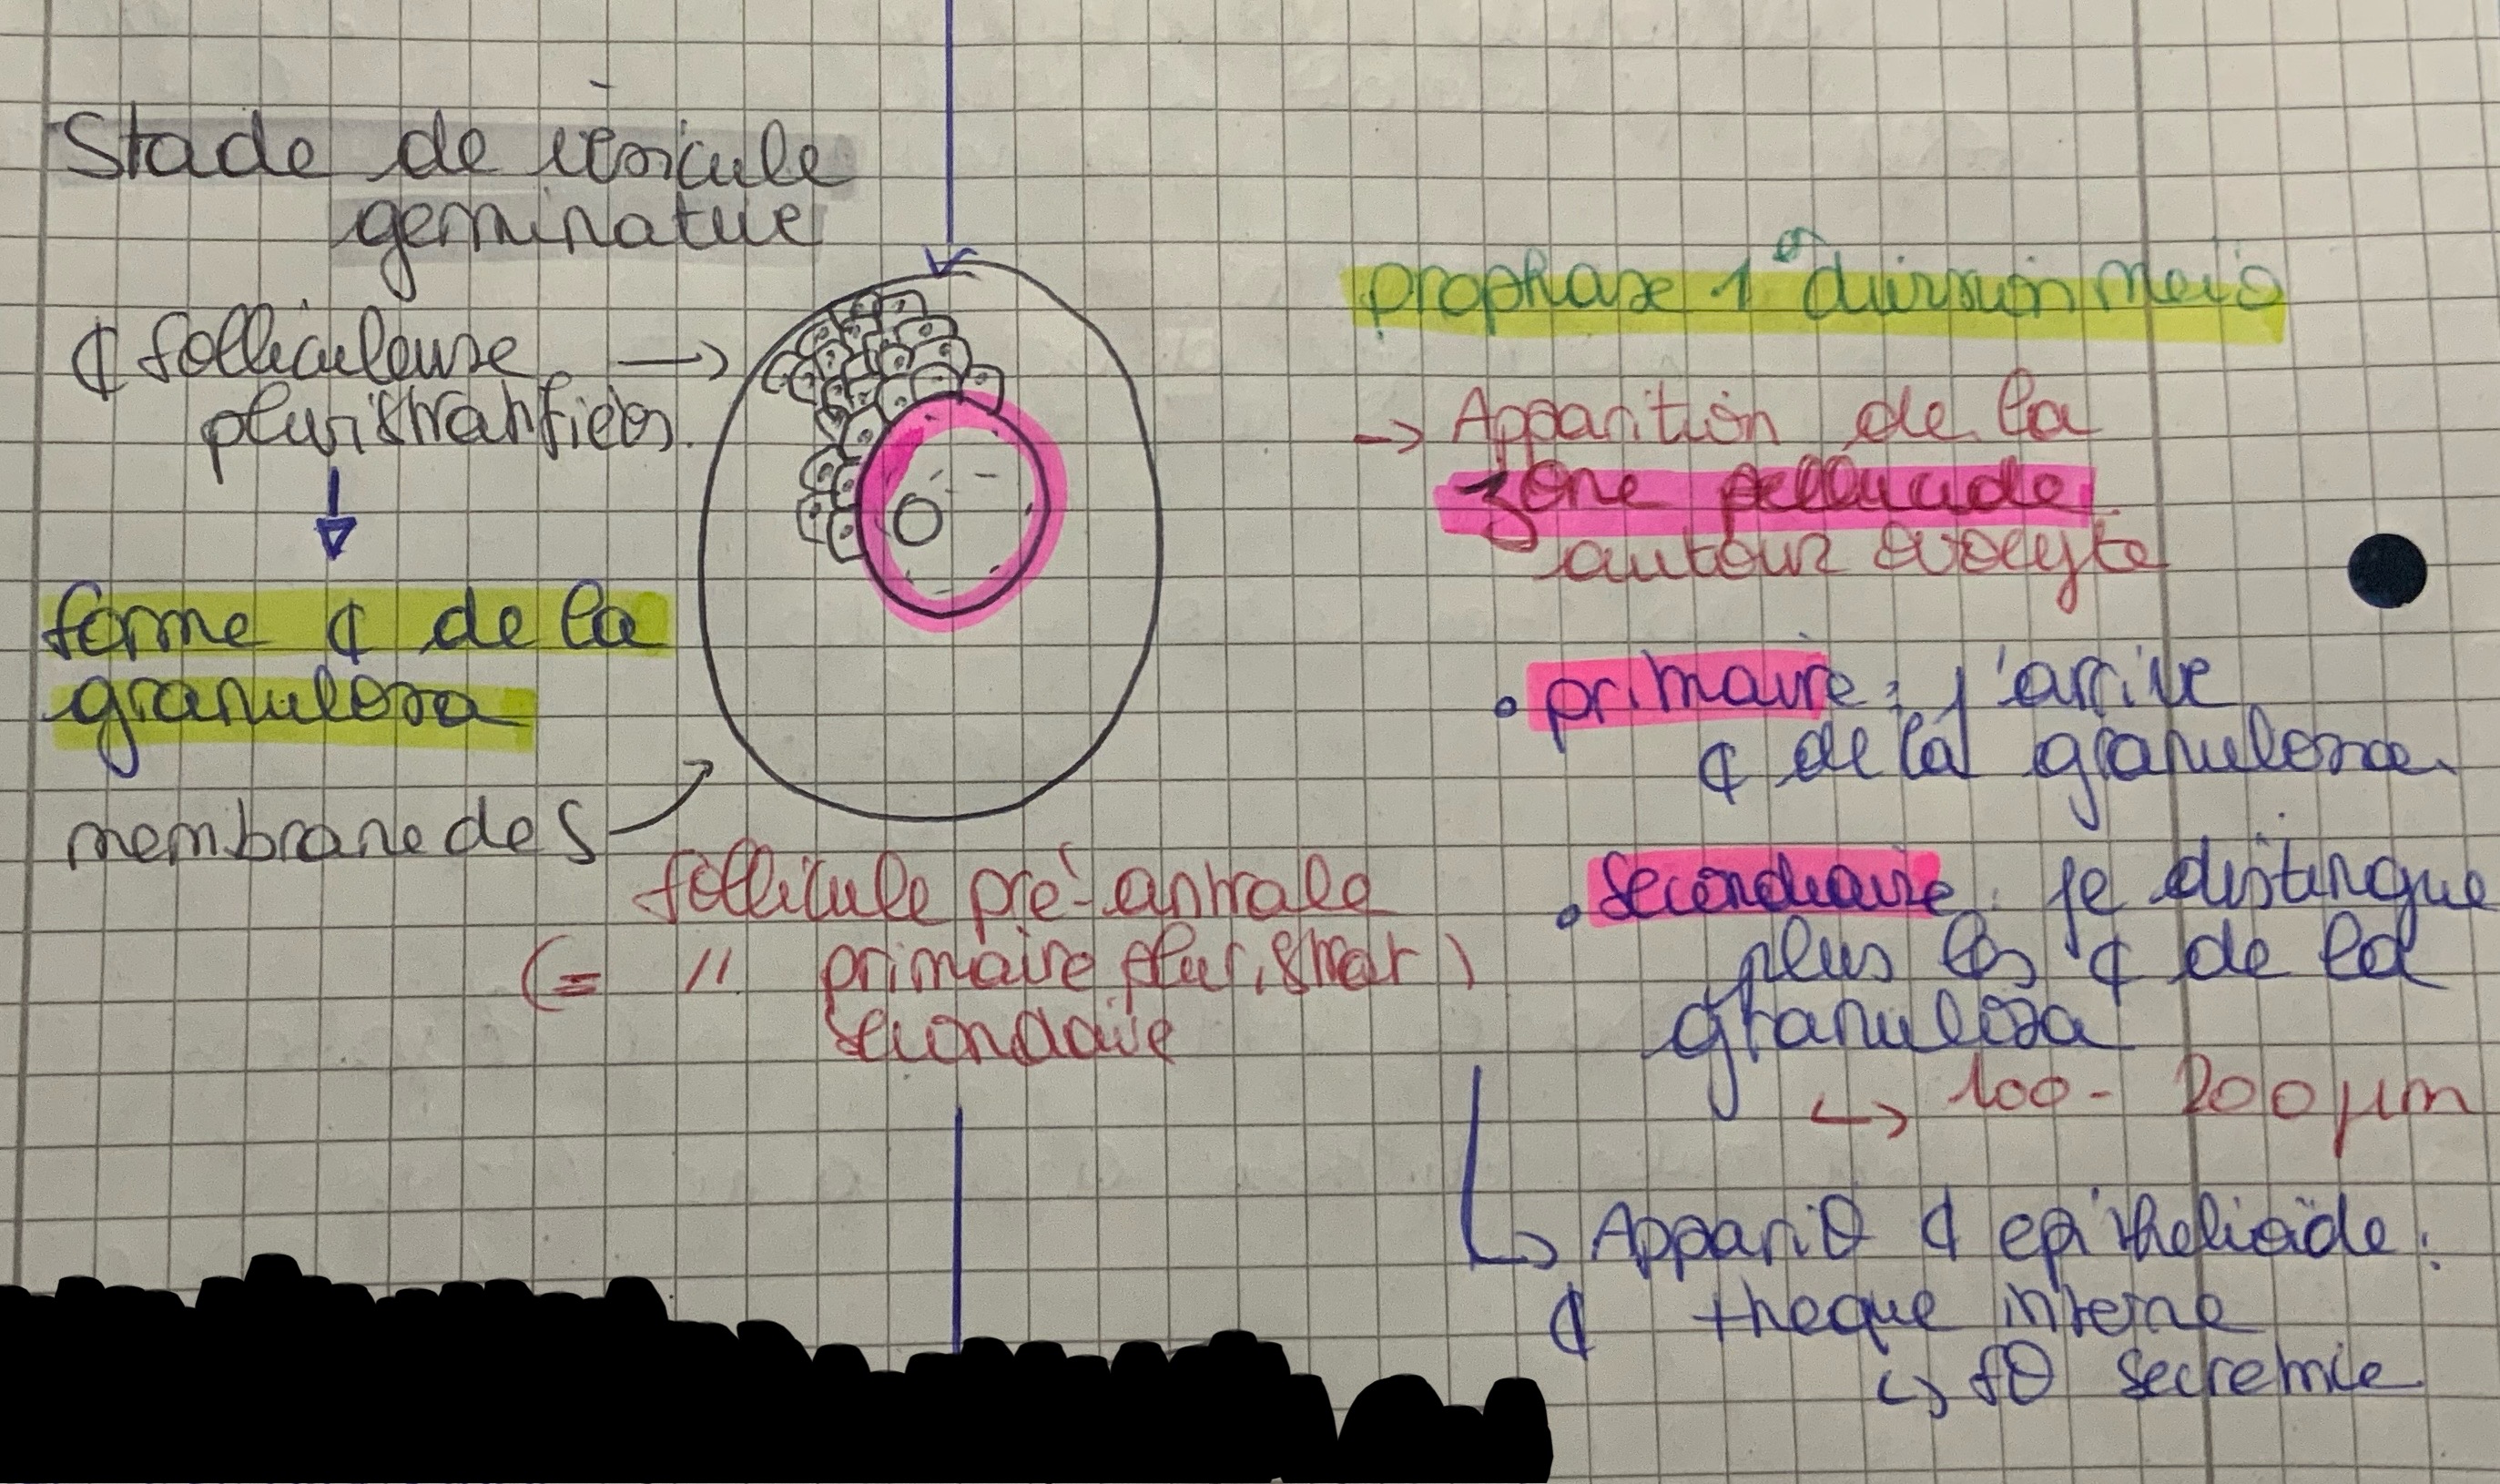 Stade de vésicule
germinative
¢ folliculeuse →
pluristratifiées.
↓
forme ¢ de la
granulosa
membrane de S
follicule pré-antrale
(= // primaire pluristrat)
secondaire
prophase 1° division meio
→ Apparition de la
zone pellucide
autour ovocyte
• primaire : j'arrive
¢ de la granulosa
• Secondaire : je distingue
plus les ¢ de la
granulosa
↳ 100 - 200 µm
↳ Appariθ ¢ epithelioïde :
¢ theque interne
↳ fθ secretrice